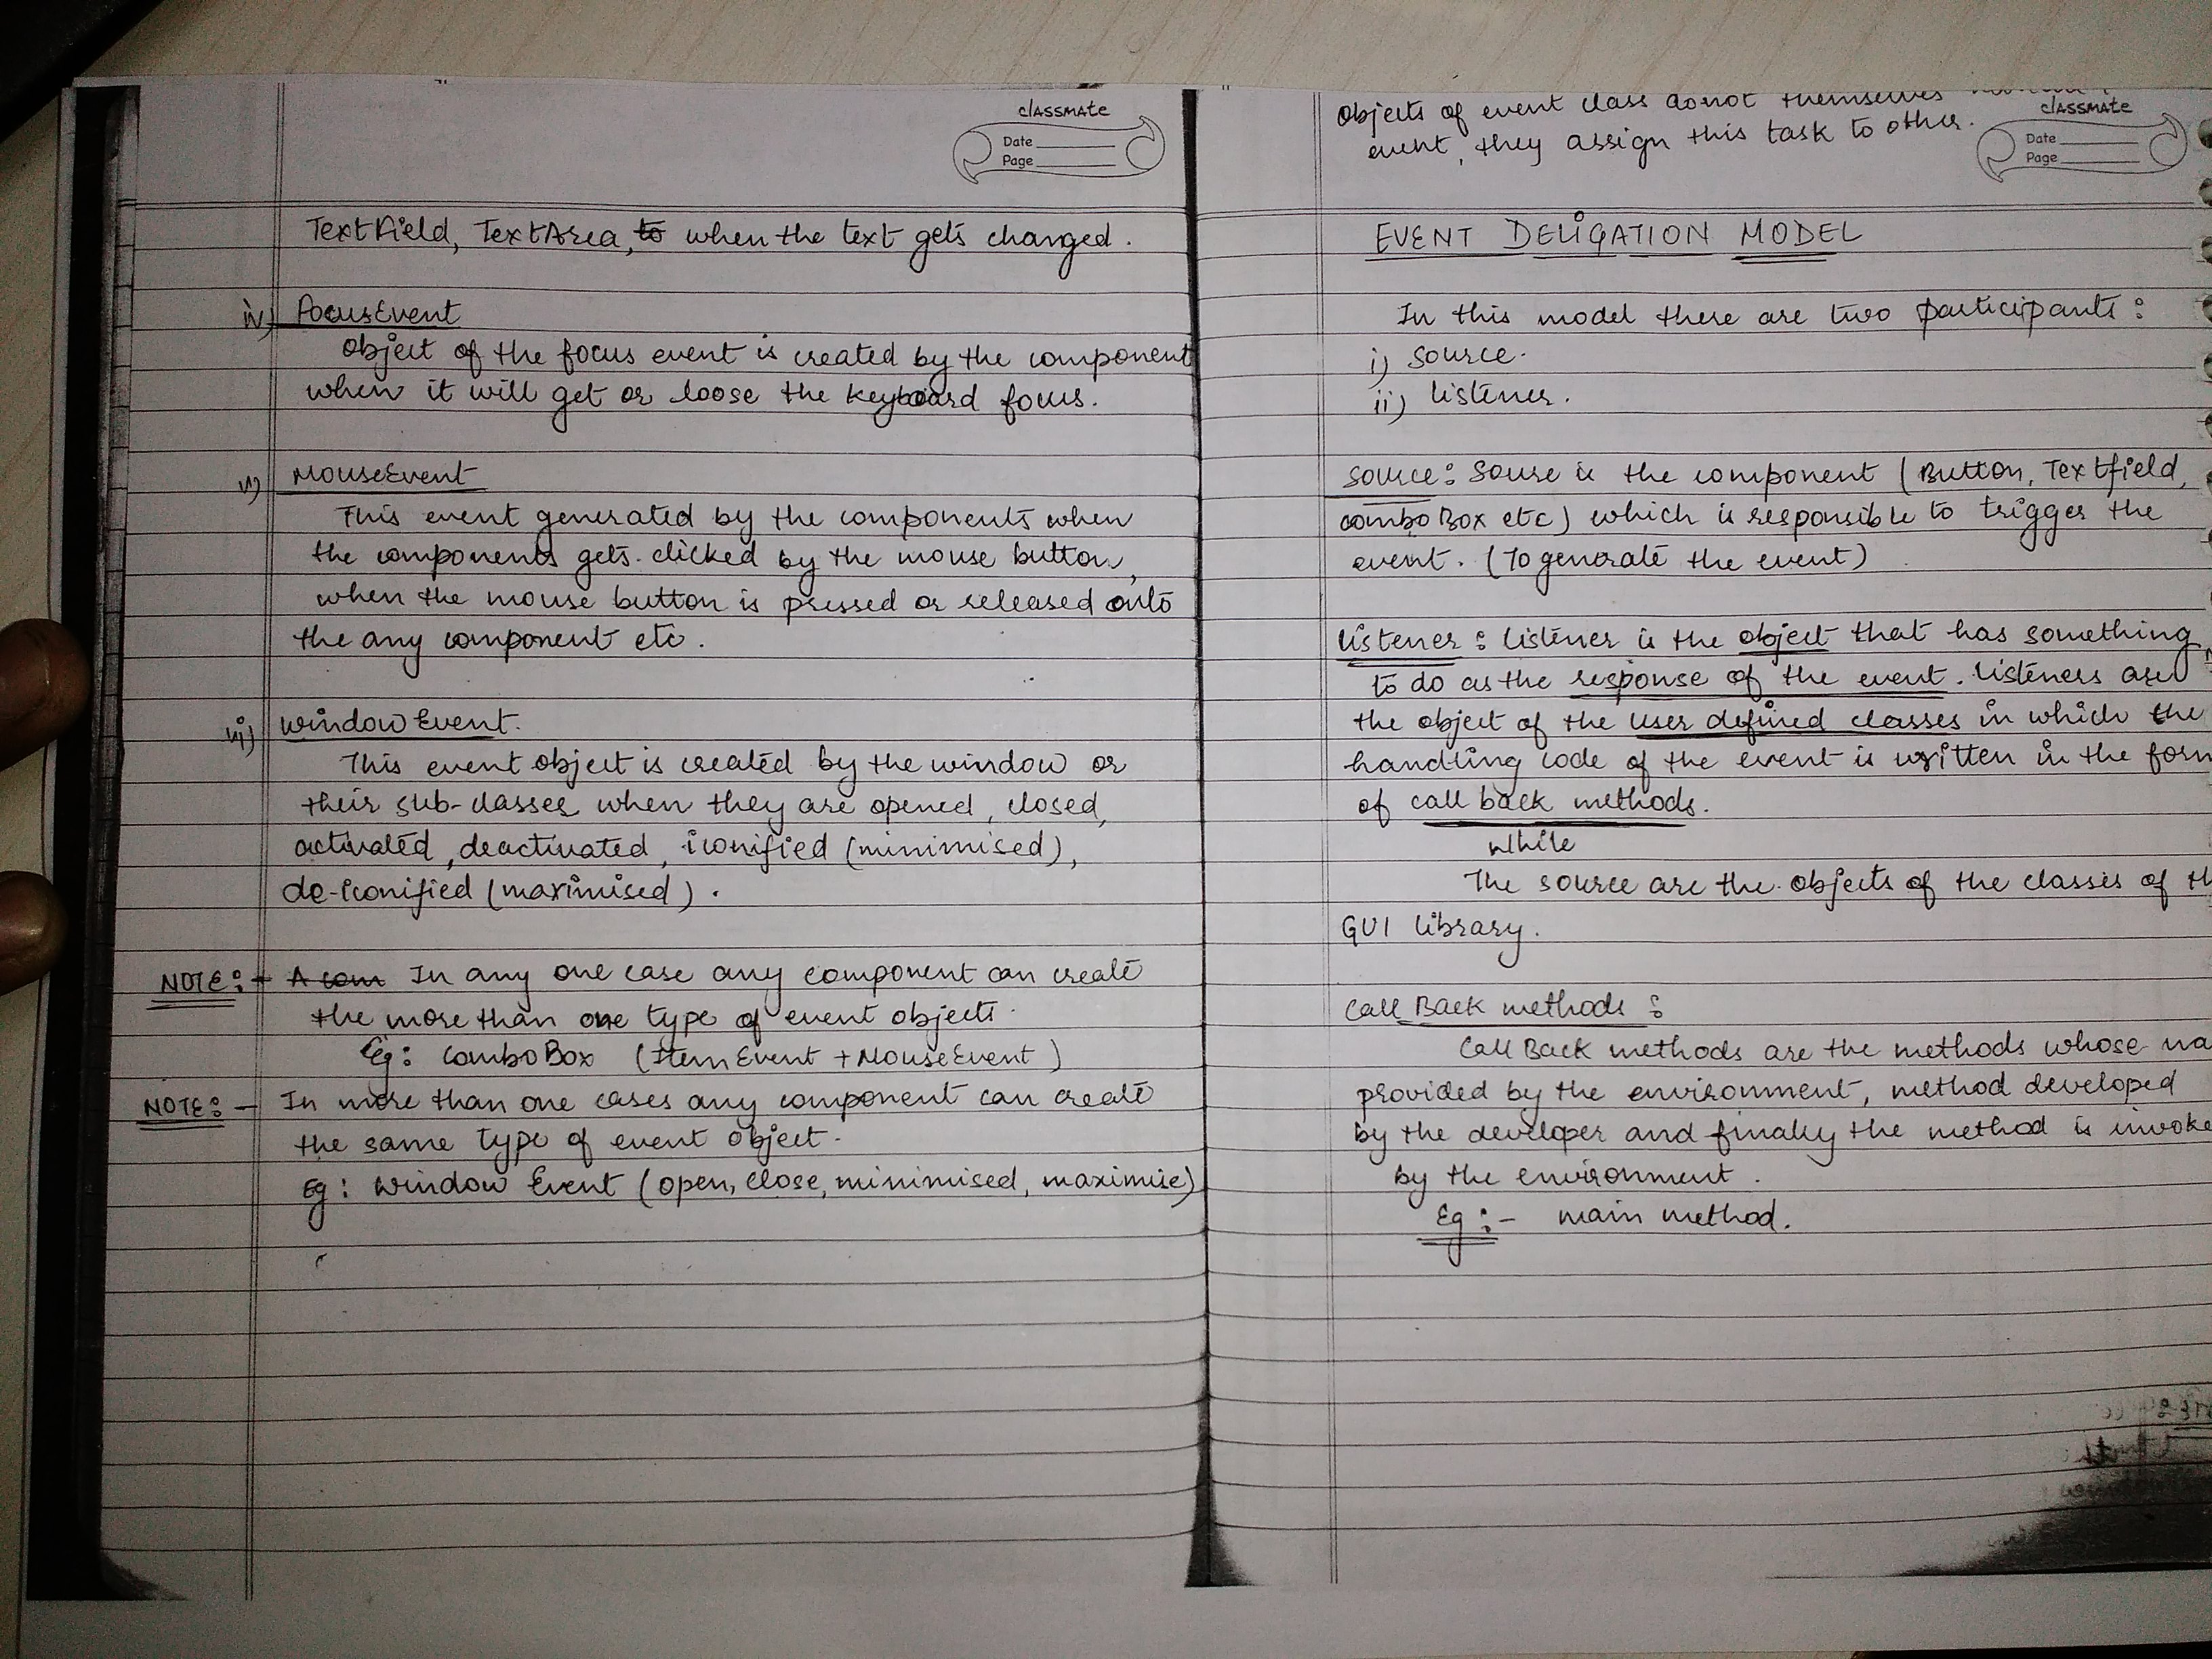 classmate
Date
Page
TextField, TextArea, to when the text gets changed.
iv) FocusEvent
Object of the focus event is created by the component
when it will get or loose the keyboard focus.
v) MouseEvent
This event generated by the components when
the components gets clicked by the mouse button,
when the mouse button is pressed or released onto
the any component etc.
vi) WindowEvent.
This event object is created by the window or
their sub-classes when they are opened, closed,
activated, deactivated, iconified (minimised),
de-iconified (maximised).
NOTE:- A com In any one case any component can create
the more than one type of event objects.
Eg: ComboBox (ItemEvent + MouseEvent)
NOTE:- In more than one cases any component can create
the same type of event object.
Eg: Window Event (open, close, minimised, maximise)
Objects of event class donot themselves
event, they assign this task to other.
classmate
Date
Page
EVENT DELIGATION MODEL
In this model there are two participants:
i) source.
ii) listener.
Source: Souse is the component (Button, Textfield,
combo Box etc) which is responsible to trigger the
event. (To generate the event)
Listener: Listener is the object that has something
to do as the response of the event. Listeners are
the object of the user defined classes in which the
handling code of the event is written in the form
of call back methods.
while
The source are the objects of the classes of th
GUI library.
Call Back methods:
Call Back methods are the methods whose na
provided by the environment, method developed
by the developer and finally the method is invoke
by the environment.
Eg:- main method.